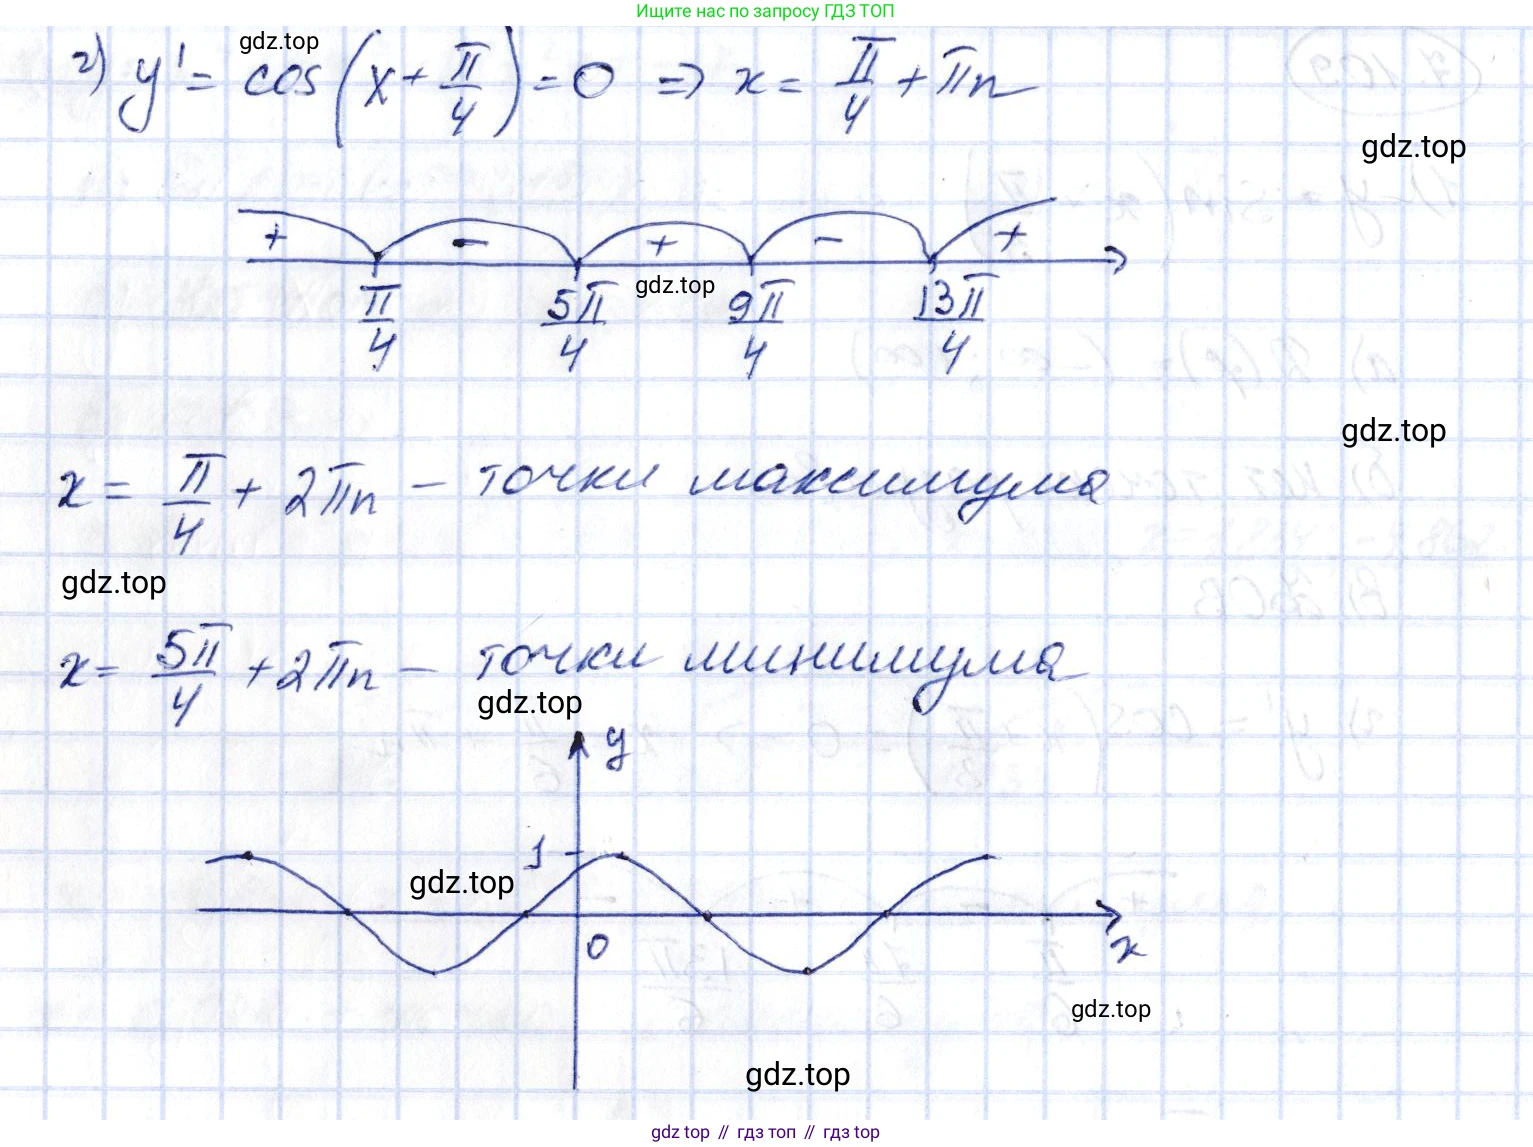 Ищите нас по запросу ГДЗ ТОП
gdz.top
г) y' = cos(x + π/4) = 0 => x = π/4 + πn
gdz.top
+ - + - +
gdz.top
π/4 5π/4 9π/4 13π/4
gdz.top
x = π/4 + 2πn - точки максимума
gdz.top
x = 5π/4 + 2πn - точки минимума
gdz.top
y
1
gdz.top
0
x
gdz.top
gdz.top
gdz.top // гдз топ // гдз top